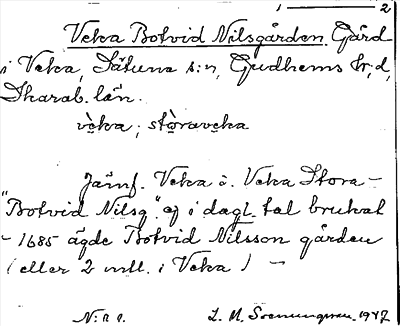 1 — 2
Veka Botvid Nilsgården. Gård
i Veka, Sätuna s:n, Gudhems hr;d,
Skarab. län.
vèka; stòraveka
Jämf. Veka o. Veka Stora –
"Botvid Nilsg". ej i dagl. tal brukat
– 1685 ägde Botvid Nilsson gården
(eller 2 mtl. i Veka) –
L. M. 1947